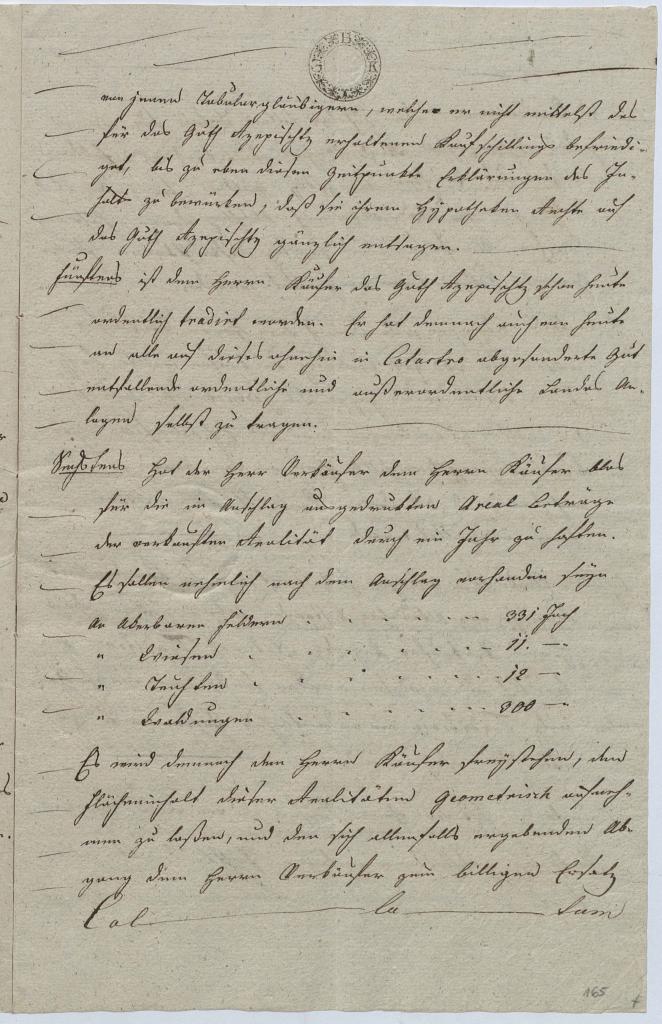 G B K
von jenen Tabulargläubigern, welche er nicht mittelst des
für das Guth erhaltenen Kaufschillings befriedi-
get, bis zu eben diesen Zeitpunkte Erklärungen des In-
halts zu bewürken, daß sie ihrem Hypotheken Rechte auf
das Guth gänzlich entsagen.
Fünftens ist dem Herrn Käufer das Guth schon heute
ordentlich tradirt worden. Er hat demnach auch von heute
an alle auf dieses ohnehin in Catastro abgesonderte Gut
entfallende ordentliche und außerordentliche Landes An-
lagen selbst zu tragen.
Sechstens Hat der Herr Verkäufer dem Herrn Käufer blos
für die im Anschlag ausgedrukten Areal Beträge
der verkauften Realität durch ein Jahr zu haften.
Es sollen nehmlich nach dem Anschlag vorhanden seyn
An Akerbaren Feldern . . . . . . 331 Joch
" Wiesen . . . . . . 11. —
" Teuchten . . . . . . 12 —
" Waldungen . . . . . . 300 —
Es wird demnach dem Herrn Käufer freystehen, den
Flächeninhalt dieser Realitäten geometrisch aufneh-
men zu laßen, und den sich allenfalls ergebenden Ab-
gang dem Herrn Verkäufer zum billigen Ersatz
Col la tum
165